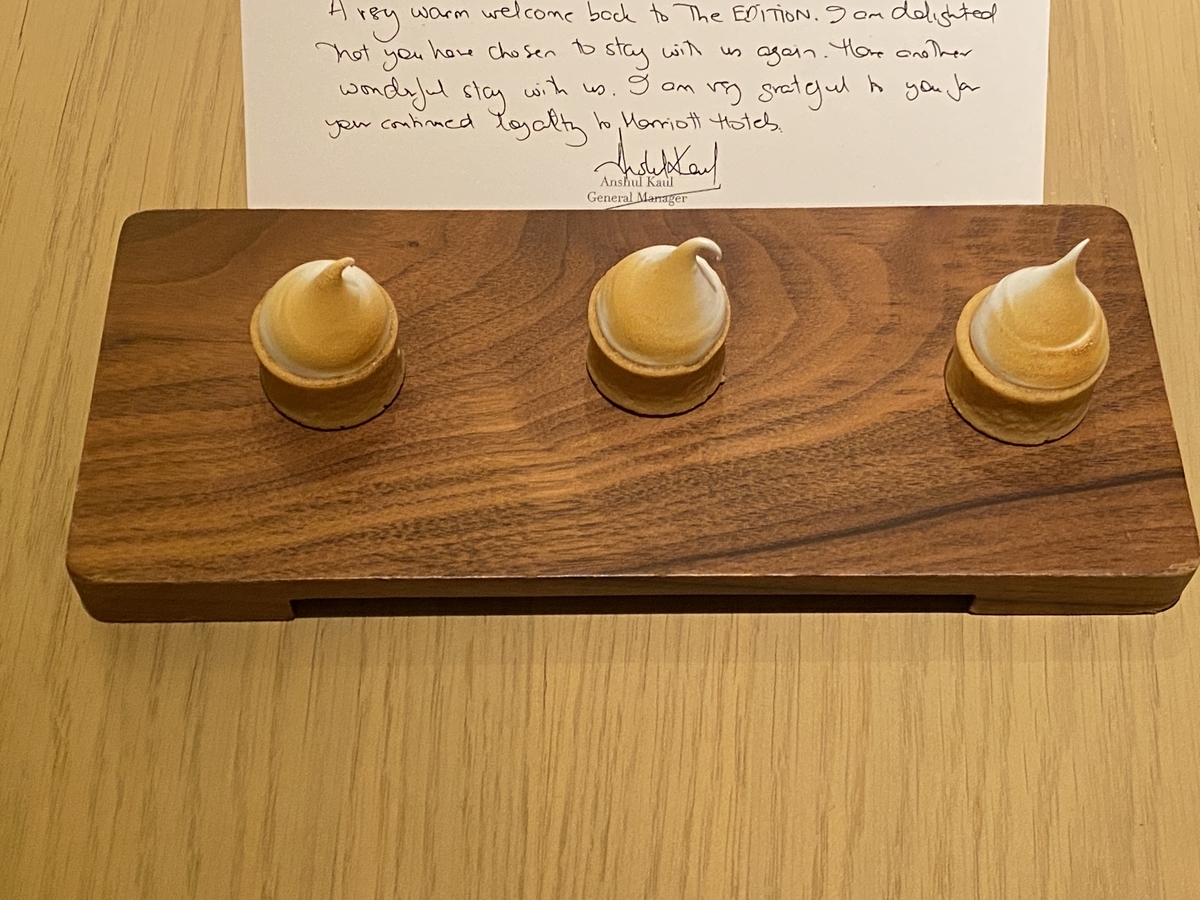 A very warm welcome back to The EDITION. I am delighted
that you have chosen to stay with us again. Have another
wonderful stay with us. I am very grateful to you for
your continued loyalty to Marriott Hotels.
Anshul Kaul
Anshul Kaul
General Manager